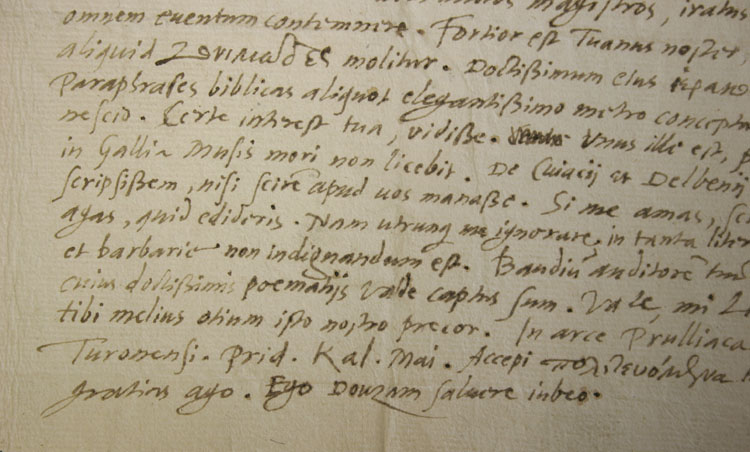 magistros, iratus
omnem eventum contemnere. Fortior est Tuanus noster,
aliquid molitur. Doctißimum eius
Paraphrases biblicas aliquot elegantißimo metro concept
nescio. Certe interest tua, vidiße. Unus ille est,
in Gallia Musis mori non licebit. De Cuiacij et Delbenij
scripsißem, nisi scirē apud vos manaße. Si me amas,
agas, quid edideris. Nam utrunq me ignorare, in tanta liter
et barbarie non indignandum est. Baudiū auditorē tuū
cuius doctißimis poematijs valde captus sum. Vale, mi
tibi melius otium isto nostro precor. In arce Prulliaca
Turonensi. Prid. Kal. Mai. Accepi πολιτευόμενα
gratias ago. Ego Douzam salvere iubeo.